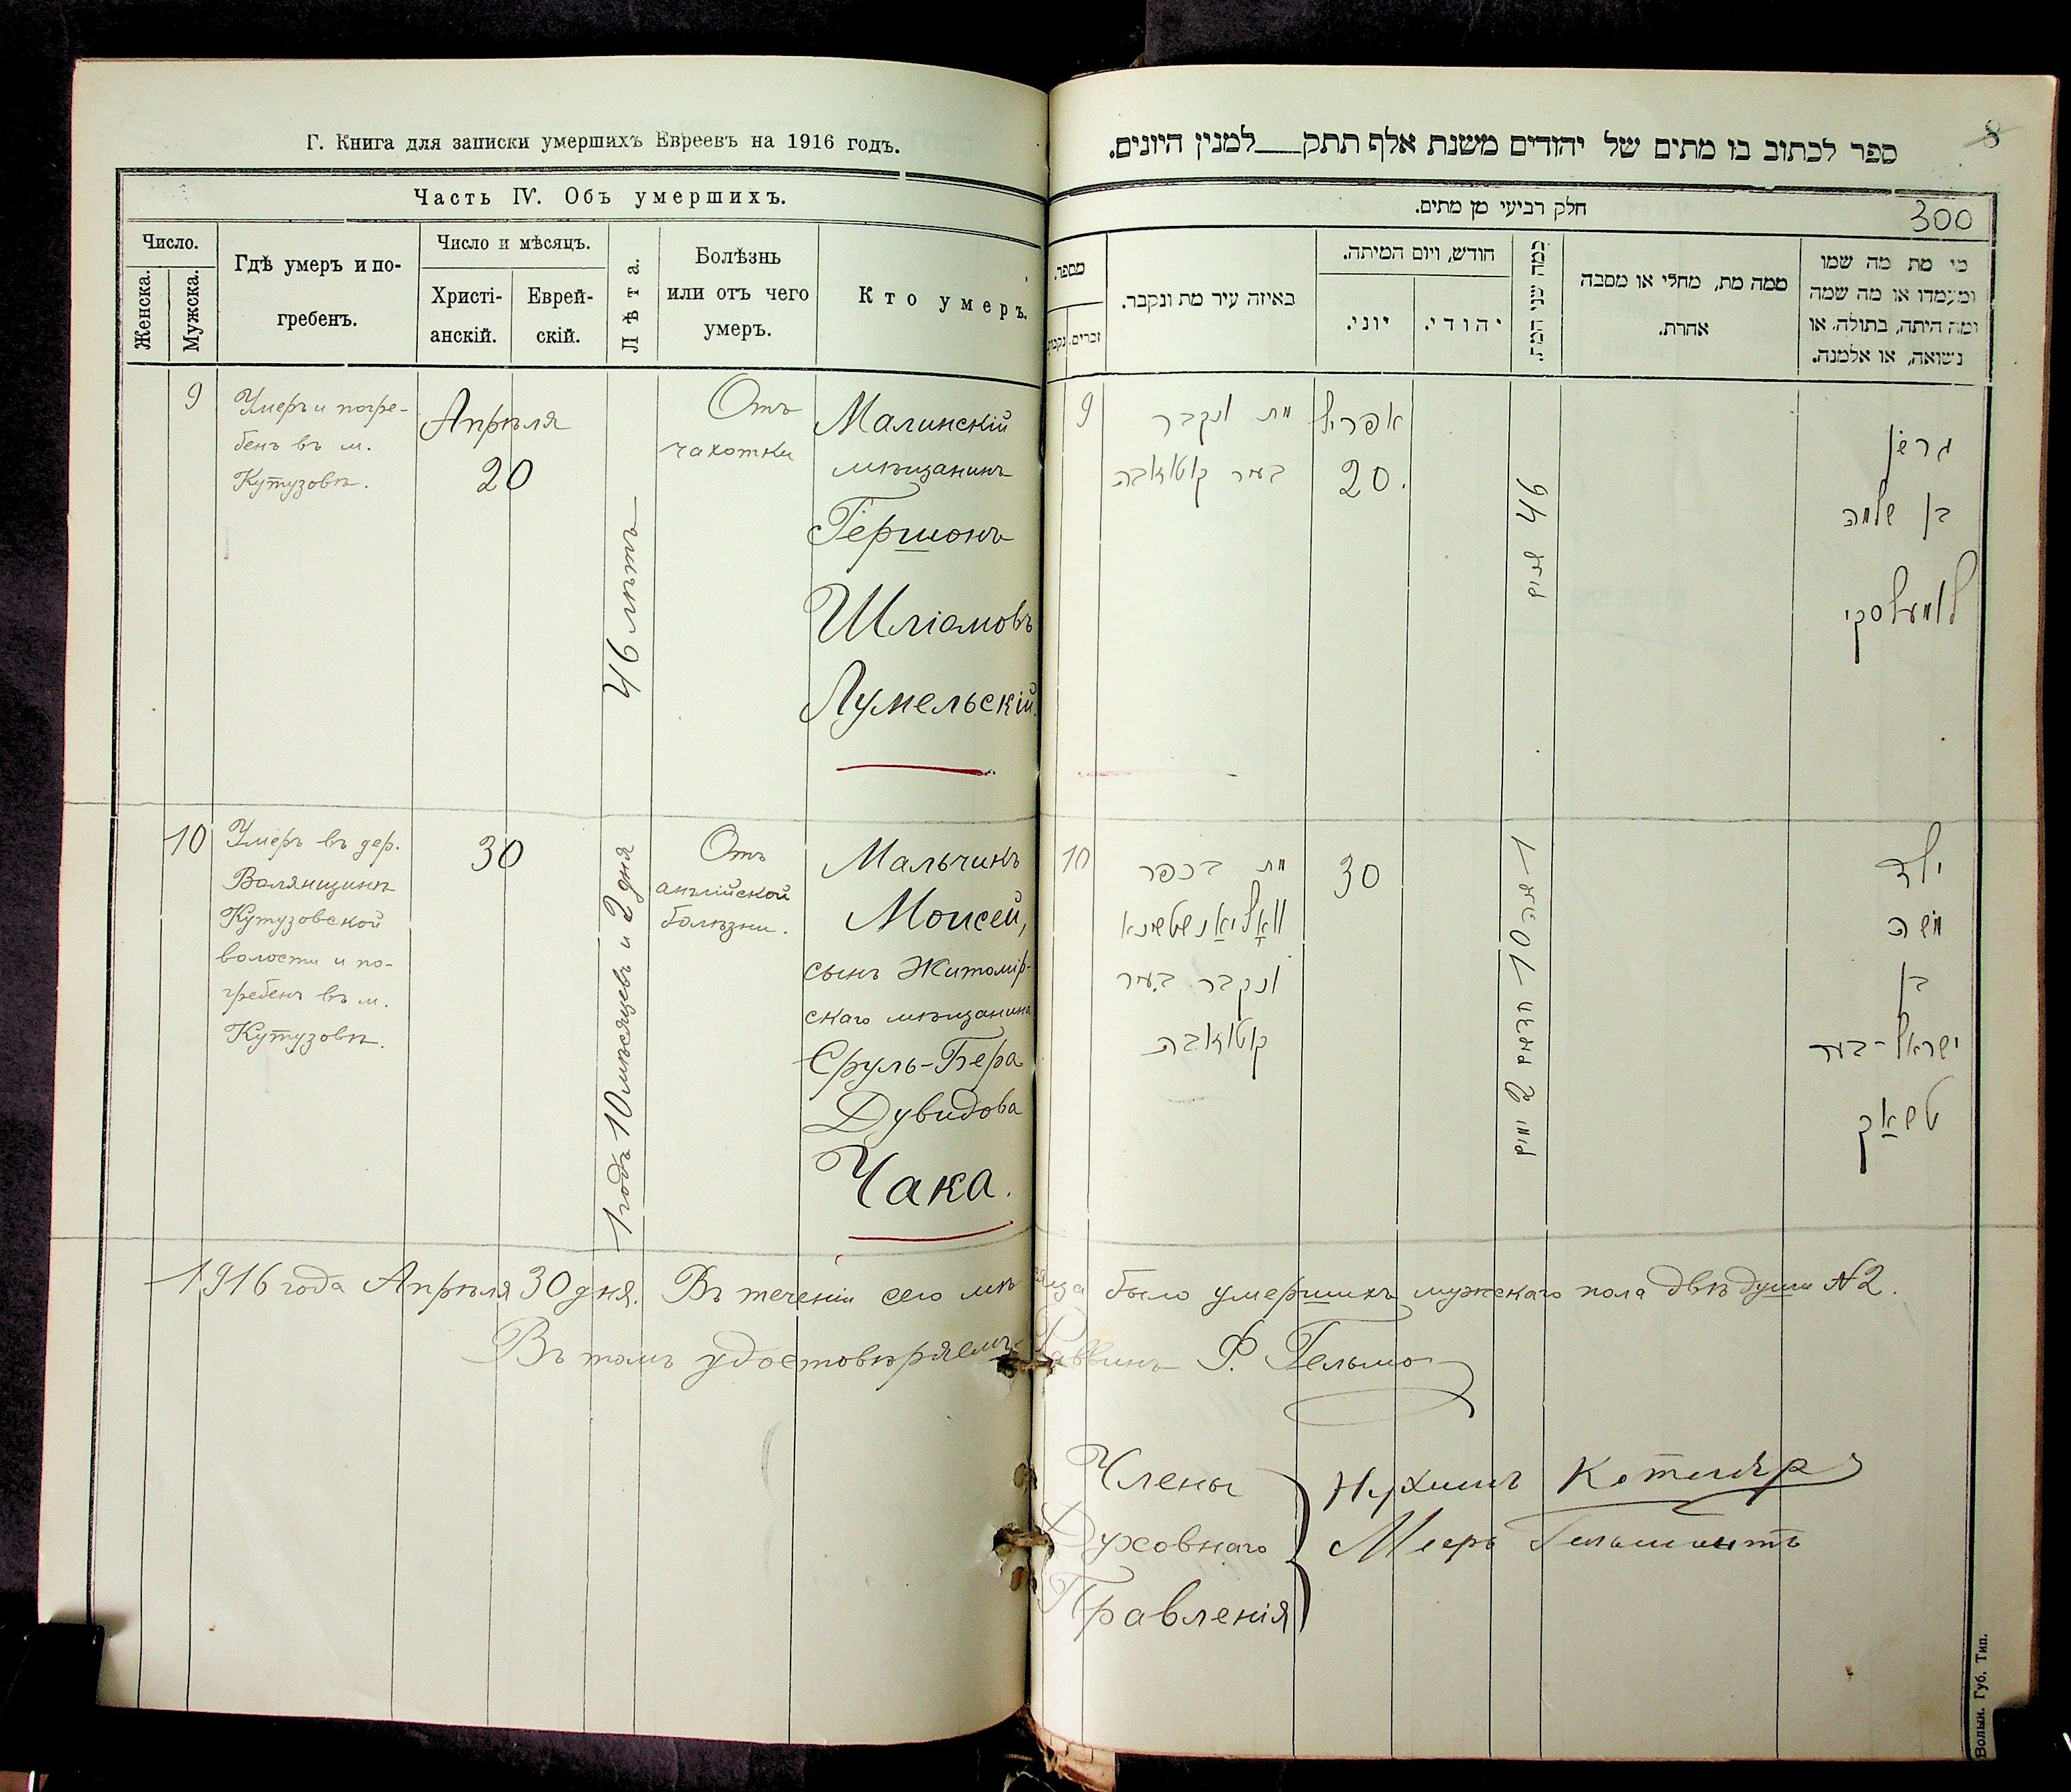 Г. Книга для записки умершихъ Евреевъ на 1916 годъ.
Часть IV. Объ умершихъ.
Число.
Женска.
Мужска.
Гдѣ умеръ и по-
гребенъ.
Число и мѣсяцъ.
Христі-
анскій.
Еврей-
скій.
Лѣта.
Болѣзнь
или отъ чего
умеръ.
Кто умеръ.
9
Умеръ и погре-
бенъ въ м.
Кутузовѣ.
Апрѣля
20
46 лѣтъ
Отъ
чахотки
Малинскій
мѣщанинъ
Гершонъ
Шліомовъ
Лумельскій.
10
Умеръ въ дер.
Волянщинѣ
Кутузовской
волости и по-
гребенъ въ м.
Кутузовѣ.
30
1 годъ 10 мѣсяцевъ и 2 дня
Отъ
англійской
болѣзни.
Мальчикъ
Моисей,
сынъ Житомір-
скаго мѣщанина
Сруль-Бера
Дувидова
Чака.
8
ספר לכתוב בו מתים של יהודים משנת אלף תתק___למנין היונים.
300
חלק רביעי מן מתים.
מספר.
זכרים.
נקבות
באיזה עיר מת ונקבר.
חודש, ויום המיתה.
יוני.
יהודי.
כמה שני המת.
ממה מת, מחלי או מסבה
אחרת.
מי מת מה שמו
ומעמדו או מה שמה
ומה היתה, בתולה, או
נשואה, או אלמנה.
9
מת ונקבר
בעיר קוטאזאבה
אפריל
20.
46 שנים
גרשון
בן שלמה
לומעלסקי
10
מת בכפר
וואָליאַנשטשינא
ונקבר בעיר
קוטאזאבה
30
1 שנה 10 חדשים 2 ימים
ילד
משה
בן
ישראל-בער
טשאַק
1916 года Апрѣля 30 дня. Въ теченіи сего мѣсяца было умершихъ мужскаго пола двѣ души №2.
Въ томъ удостовѣряемъ: Раввинъ Ф.
Члены
Духовнаго
Правленія
Нухимъ Котляръ
Мееръ
Волын. Губ. Тип.